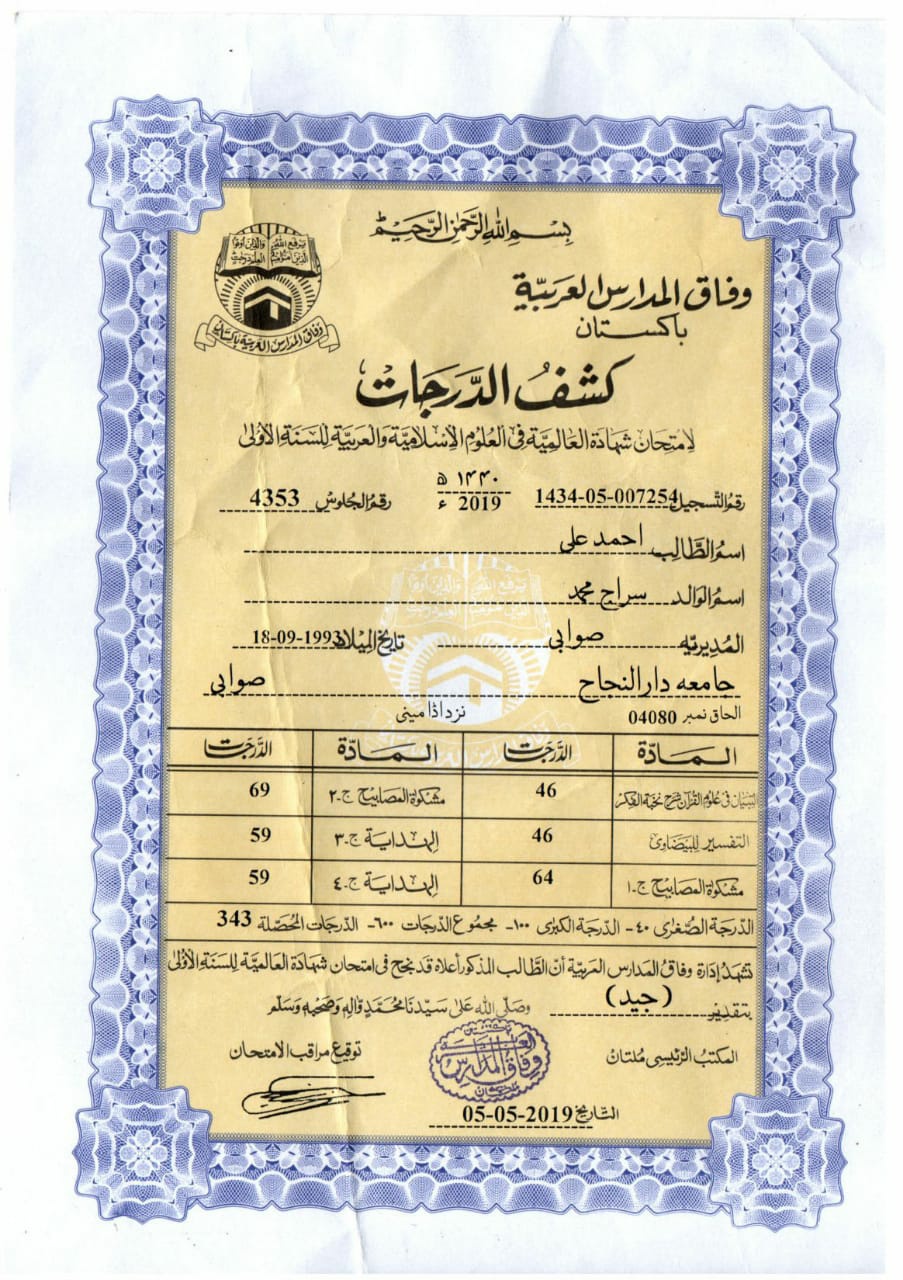 بِسْمِ اللهِ الرَّحْمٰنِ الرَّحِيْمِ
يرفع الله الذين آمنوا منكم والذين اوتوا العلم درجٰت
وفاق المدارس العربية باكستان
وفاق المدارس العربيّة
باكستان
كشفُ الدَّرَجَات
لامتحان شهادة العالميّة في العلوم الإسلاميّة والعربيّة للسنة الأولىٰ
رقم التسجيل 1434-05-007254 ١٤٤٠ ھ رقم الجلوس 4353
2019 ء
اسم الطَّالب احمد علی
اسم الوالد سراج محمد
المُديريّه صوابی تاريخ الميلاد 18-09-1993
جامعه دارالنجاح صوابی
الحاق نمبر 04080 نزد اڈا مینی
المادّة الدّرجات المادّة الدّرجات
التبيان في علوم القرآن شرح نخبة الفكر 46 مشكوٰة المصابيح ج-٢ 69
التفسير للبيضاوى 46 الهداية ج-٣ 59
مشكوٰة المصابيح ج-١ 64 الهداية ج-٤ 59
الدّرجة الصُّغرىٰ ٤٠- الدّرجة الكبرىٰ ١٠٠- مجموع الدّرجات ٦٠٠- الدّرجات المُحصّلة 343
تشهد إدارة وفاق المدارس العربيّة أنّ الطَّالب المذكور أعلاه قد نجح في امتحان شهادة العالميّة للسنة الأولىٰ
بتقدير (جيد) وصلّى الله علىٰ سيّدنا محمّد وّاٰلهٖ وصحبهٖ وسلّم
المكتب الرّئيسى مُلتان وفاق المدارس توقيع مراقب الامتحان
التاريخ 05-05-2019